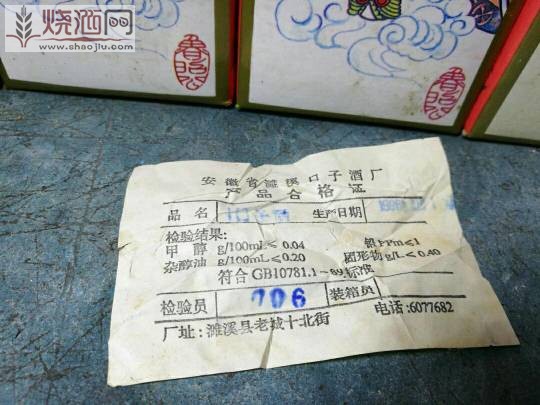 烧酒网
www.shaojiu.com
安徽省濉溪口子酒厂
产品合格证
品名 生产日期
检验结果:
甲醇 g/100mL≤0.04 铅PPm≤1
杂醇油 g/100mL≤0.20 固形物g/L≤0.40
符合GB10781.1-89标准
检验员 706 装箱员
厂址:濉溪县老城十北街 电话:6077682